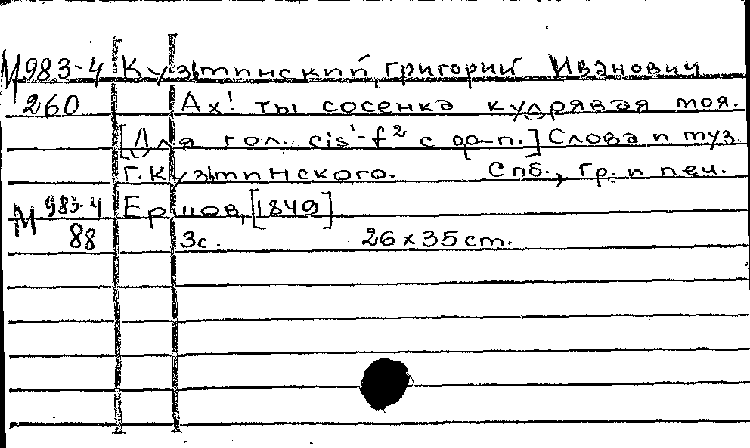 М983-4 Кузминский, Григорий Иванович
260 Ах! ты сосенка кудрявая моя.
[Для гол. cis¹-f² с ф-п.] Слова и муз.
Г. Кузминского. Спб., Гр. и печ.
М 983-4 [1849]
88 3с. 26x35cm.